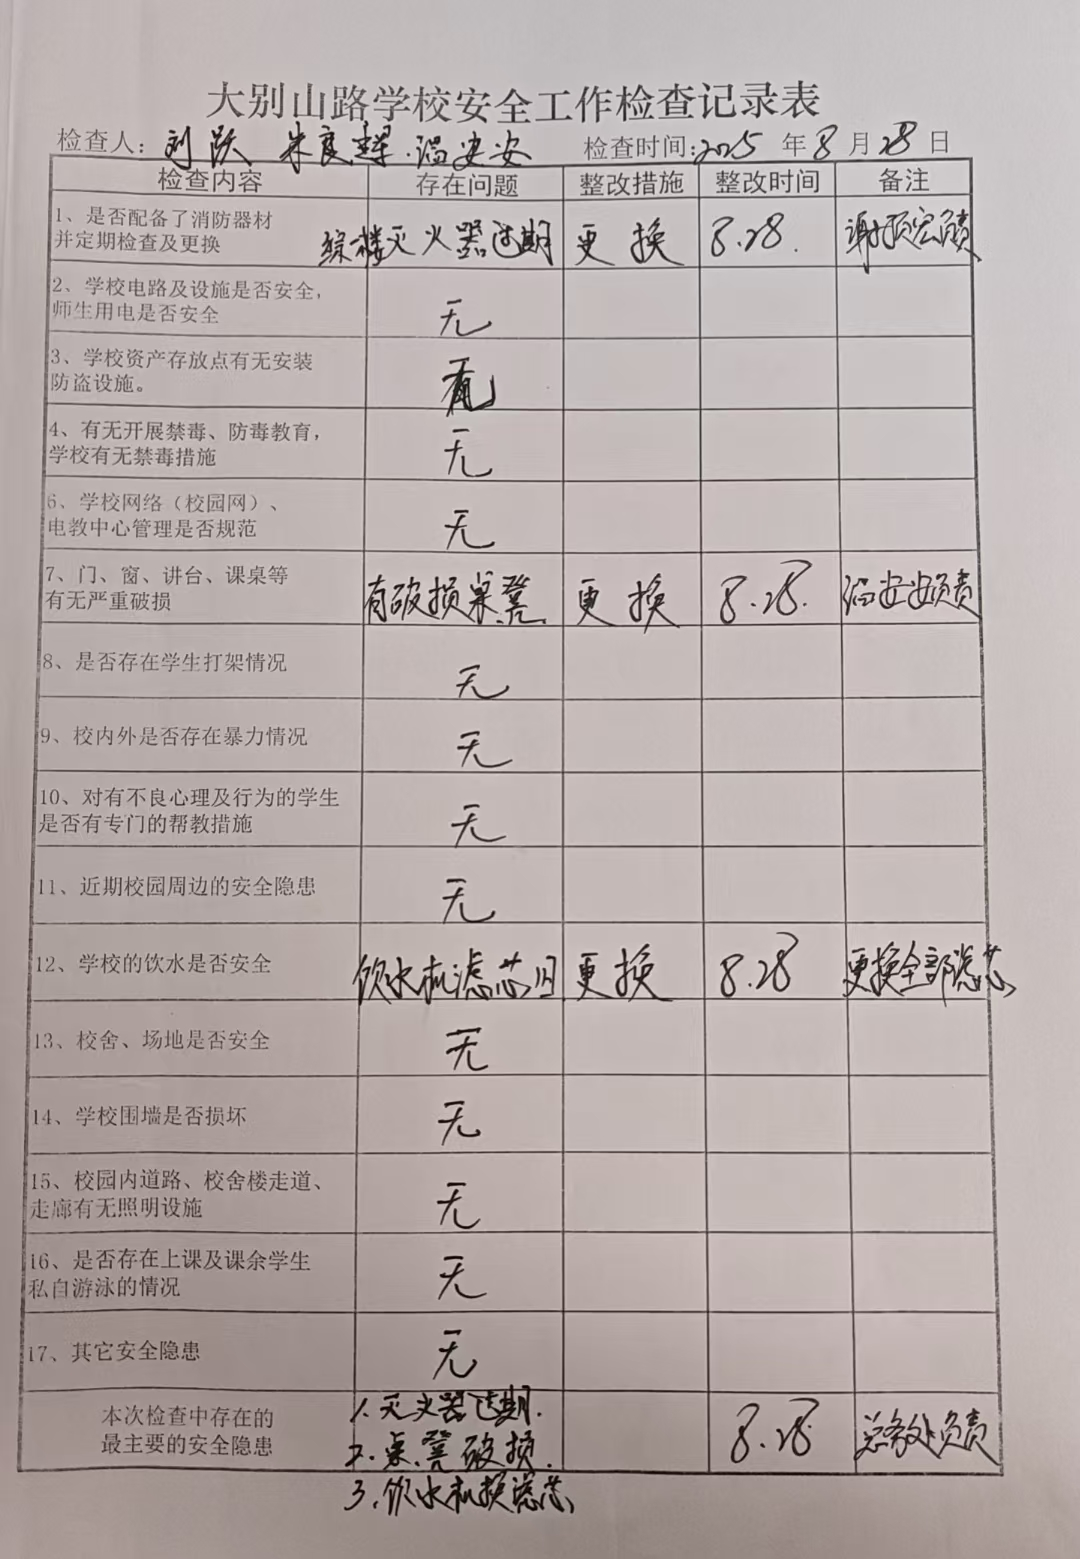 大别山路学校安全工作检查记录表
检查人：刘跃 朱良辉 温安安 检查时间:2025年8月28日
检查内容 存在问题 整改措施 整改时间 备注
1、是否配备了消防器材
并定期检查及更换
综楼灭火器过期 更换 8.28. 谢顶宏负责
2、学校电路及设施是否安全，
师生用电是否安全
无
3、学校资产存放点有无安装
防盗设施。
4、有无开展禁毒、防毒教育，
学校有无禁毒措施
无
6、学校网络（校园网）、
电教中心管理是否规范
无
7、门、窗、讲台、课桌等
有无严重破损
有破损桌凳. 更换 8.28. 温安安负责
8、是否存在学生打架情况
无
9、校内外是否存在暴力情况
无
10、对有不良心理及行为的学生
是否有专门的帮教措施
无
11、近期校园周边的安全隐患
无
12、学校的饮水是否安全
饮水机滤芯旧 更换 8.28 更换全部滤芯
13、校舍、场地是否安全
无
14、学校围墙是否损坏
无
15、校园内道路、校舍楼走道、
走廊有无照明设施
无
16、是否存在上课及课余学生
私自游泳的情况
无
17、其它安全隐患
无
本次检查中存在的
最主要的安全隐患
1.灭火器过期.
2.桌凳破损.
3.饮水机换滤芯
8.28 总务处负责